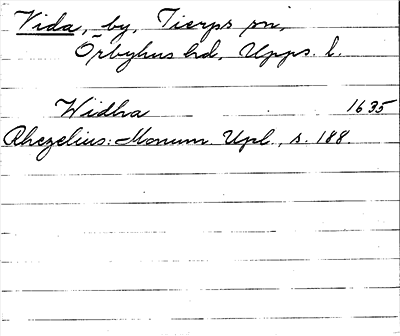 Vida, by, Tierps sn,
Örbyhus hd, Upps. l.
Widha 1635
Rhezelius: Monum. Upl., s. 188.